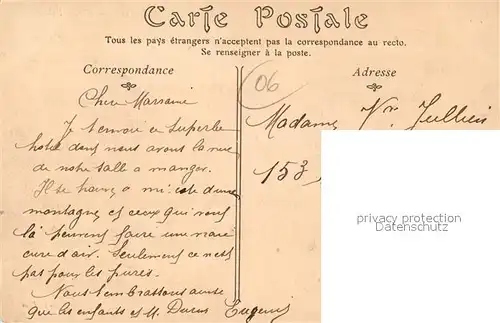 Carte Postale
Tous les pays étrangers n'acceptent pas la correspondance au recto.
Se renseigner à la poste.
Correspondance
Adresse
06
Chère Marraine
Je t'envoie ce superbe
hotel dans nous avons la vue
de notre salle a manger.
Il se trouve a mi-côte d'une
montagne et ceux qui vont
là peuvent faire une vraie
cure d'air. Seulement ce n'est
pas pour les purées.
Nous t'embrassons ainsi
que les enfants et M. Ducros Eugénie
Madame Vve Jullien
153,
privacy protection
Datenschutz